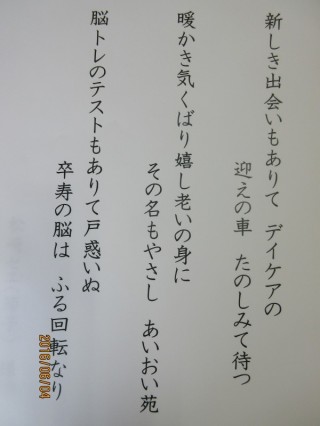 新しき出会いもありて　デイケアの
迎えの車　たのしみて待つ
暖かき気くばり嬉し老いの身に
その名もやさし　あいおい苑
脳トレのテストもありて戸惑いぬ
卒寿の脳は　ふる回転なり
2018/08/04